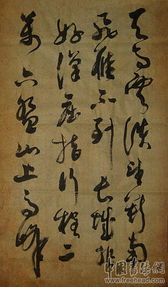 天高雲淡望斷南
飛雁不到長城非
好漢屈指行程二
萬六盤山上高峰